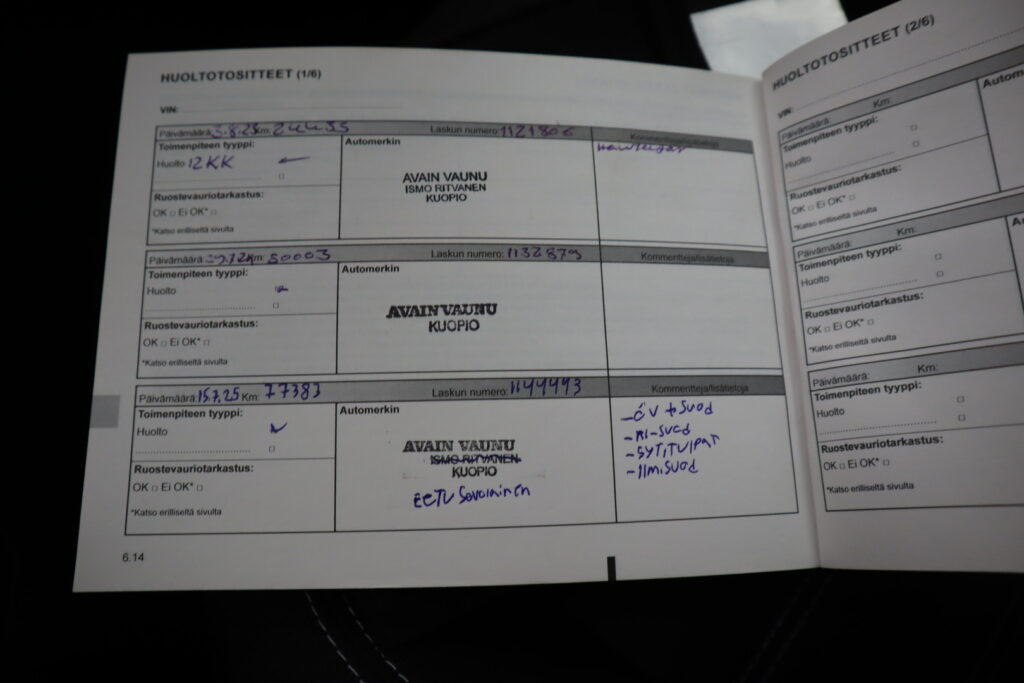 HUOLTOTOSITTEET (1/6)
VIN:
Päivämäärä: 3.8.23 Km: 24455 Laskun numero: 1121806
Toimenpiteen tyyppi: Automerkin
Huolto 12KK
AVAIN VAUNU
ISMO RITVANEN
KUOPIO
Ruostevauriotarkastus:
OK □ Ei OK* □
*Katso erilliseltä sivulta
Päivämäärä: Km: 50003 Laskun numero: 1132879 Kommentteja/lisätietoja
Toimenpiteen tyyppi: Automerkin
Huolto
AVAIN VAUNU
KUOPIO
Ruostevauriotarkastus:
OK □ Ei OK* □
*Katso erilliseltä sivulta
Päivämäärä: 15.7.25 Km: 77383 Laskun numero: 1144493 Kommentteja/lisätietoja
Toimenpiteen tyyppi: Automerkin
Huolto
AVAIN VAUNU
ISMO RITVANEN
KUOPIO
EETU Savolainen
-ÖV + SUOD
-RI-SUOD
-SYT.TULPAT
-ILMISUOD
Ruostevauriotarkastus:
OK □ Ei OK* □
*Katso erilliseltä sivulta
6.14
HUOLTOTOSITTEET (2/6)
VIN:
Päivämäärä: Km:
Toimenpiteen tyyppi:
Huolto
Ruostevauriotarkastus:
OK □ Ei OK* □
*Katso erilliseltä sivulta
Päivämäärä: Km:
Toimenpiteen tyyppi:
Huolto
Ruostevauriotarkastus:
OK □ Ei OK* □
*Katso erilliseltä sivulta
Päivämäärä: Km:
Toimenpiteen tyyppi:
Huolto
Ruostevauriotarkastus:
OK □ Ei OK* □
*Katso erilliseltä sivulta